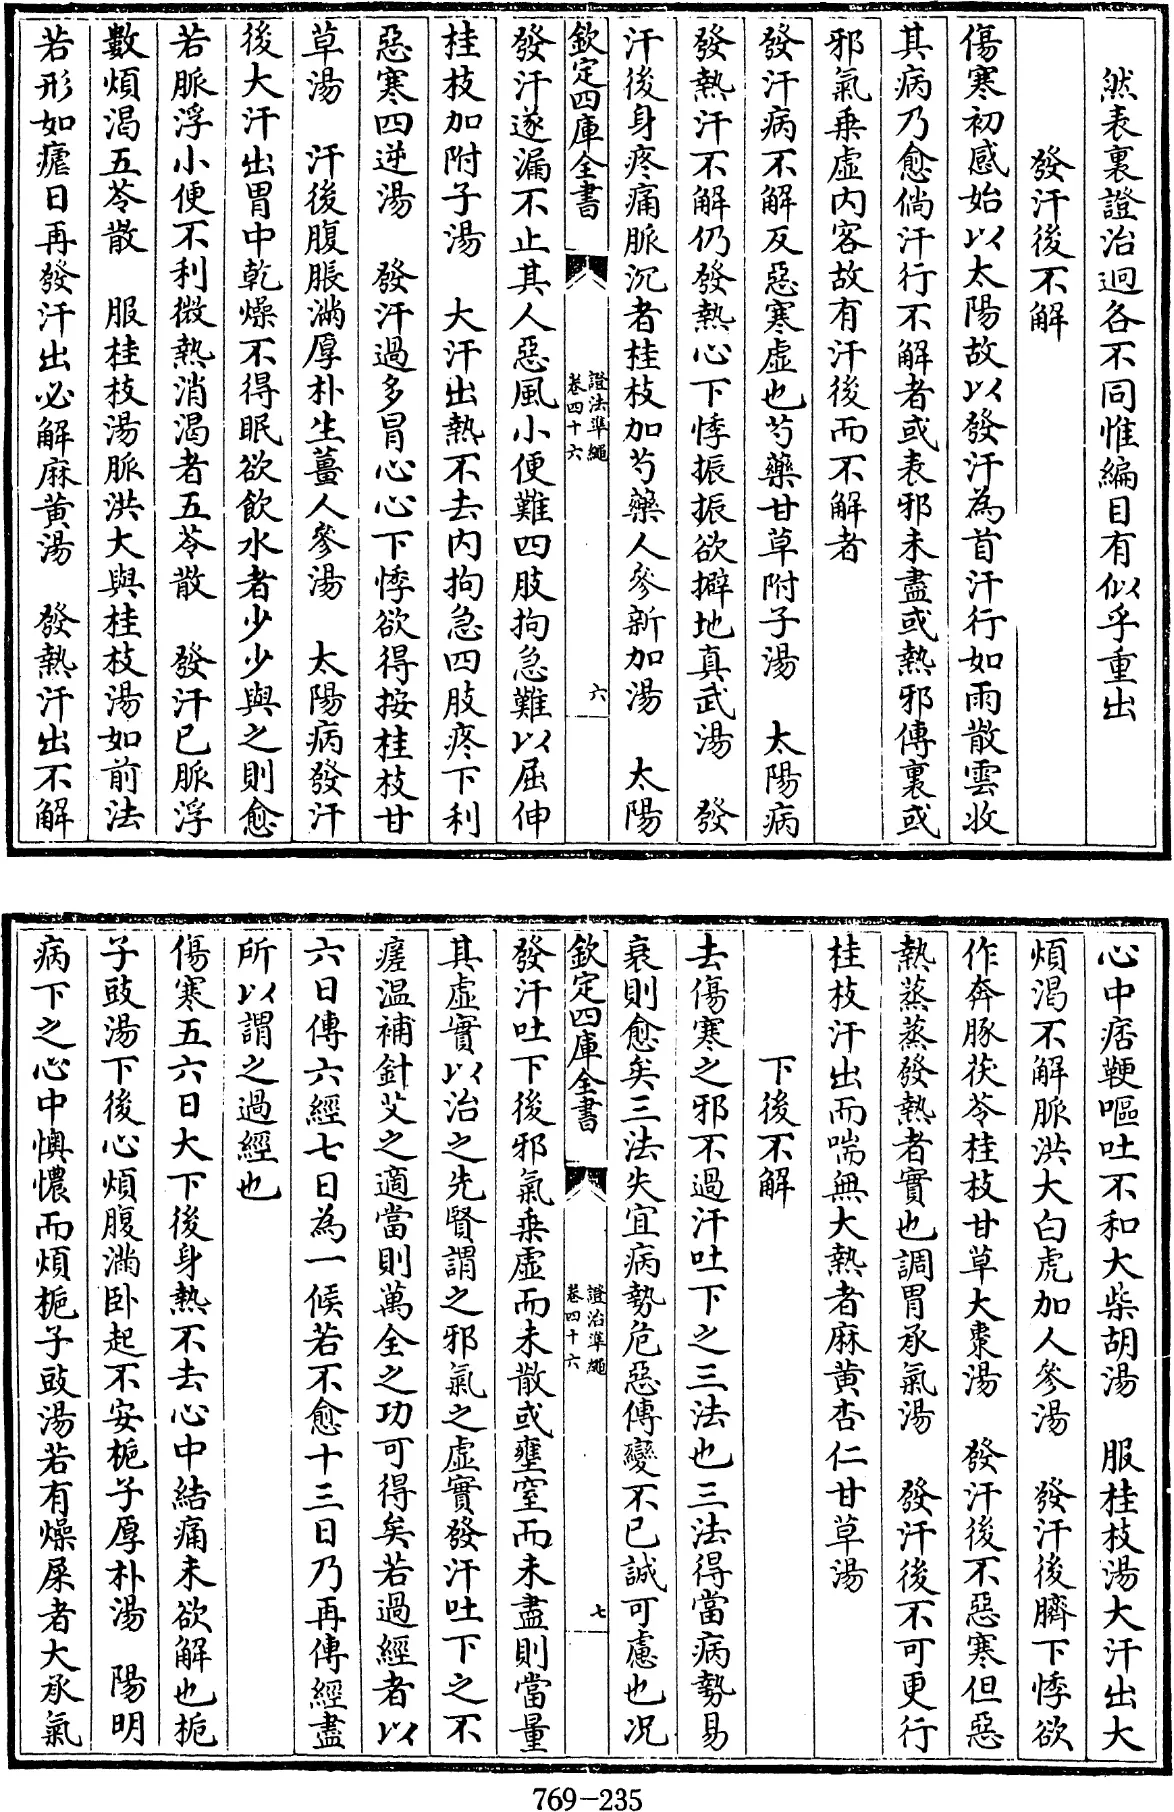 然表裏證治迥各不同惟編目有似乎重出
發汗後不解
傷寒初感始以太陽故以發汗為首汗行如雨散雲收
其病乃愈倘汗行不解者或表邪未盡或熱邪傳裏或
邪氣乗虛内客故有汗後而不解者
發汗病不解反惡寒虛也芍藥甘草附子湯　太陽病
發熱汗不解仍發熱心下悸振振欲擗地真武湯　發
汗後身疼痛脈沉者桂枝加芍藥人參新加湯　太陽
欽定四庫全書
證法準繩
卷四十六
六
發汗遂漏不止其人惡風小便難四肢拘急難以屈伸
桂枝加附子湯　大汗出熱不去内拘急四肢疼下利
惡寒四逆湯　發汗過多冒心心下悸欲得按桂枝甘
草湯　汗後腹脹滿厚朴生薑人參湯　太陽病發汗
後大汗出胃中乾燥不得眠欲飲水者少少與之則愈
若脈浮小便不利微熱消渴者五苓散　發汗已脈浮
數煩渴五苓散　服桂枝湯脈洪大與桂枝湯如前法
若形如瘧日再發汗出必解麻黄湯　發熱汗出不解
心中痞鞕嘔吐不和大柴胡湯　服桂枝湯大汗出大
煩渴不解脈洪大白虎加人參湯　發汗後臍下悸欲
作奔豚茯苓桂枝甘草大棗湯　發汗後不惡寒但惡
熱蒸蒸發熱者實也調胃承氣湯　發汗後不可更行
桂枝汗出而喘無大熱者麻黄杏仁甘草湯
下後不解
去傷寒之邪不過汗吐下之三法也三法得當病勢易
衰則愈矣三法失宜病勢危惡傳變不已誠可慮也况
欽定四庫全書
證治準繩
卷四十六
七
發汗吐下後邪氣乗虛而未散或壅窒而未盡則當量
其虛實以治之先賢謂之邪氣之虛實發汗吐下之不
瘥温補針艾之適當則萬全之功可得矣若過經者以
六日傳六經七日為一候若不愈十三日乃再傳經盡
所以謂之過經也
傷寒五六日大下後身熱不去心中結痛未欲解也梔
子豉湯下後心煩腹滿卧起不安梔子厚朴湯　陽明
病下之心中懊憹而煩梔子豉湯若有燥屎者大承氣
769-235